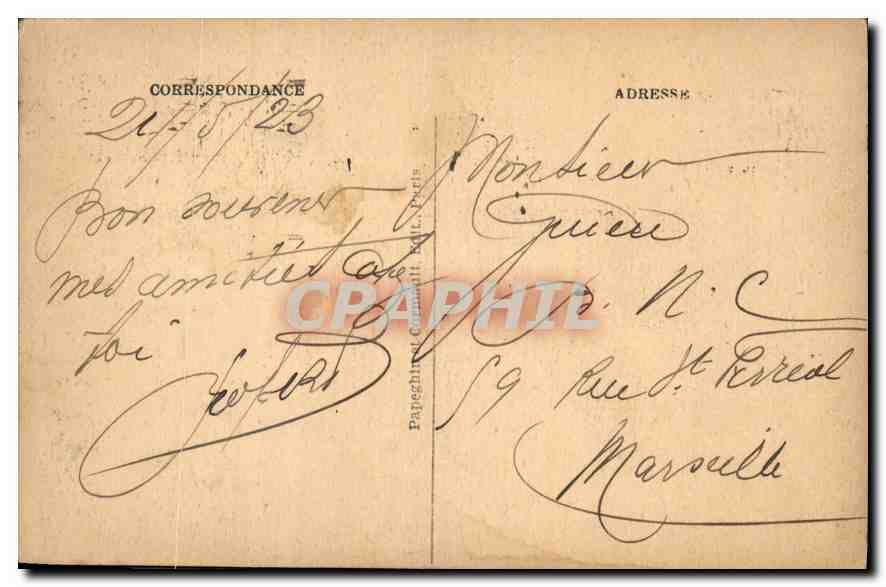 CORRESPONDANCE
21/5/23
Bon souvenir
mes amitiés
toi
Papeghin et Cornuault, Edit., Paris
ADRESSE
Monsieur
B. N. C
59 Rue St Ferréol
Marseille
CPAPHIL